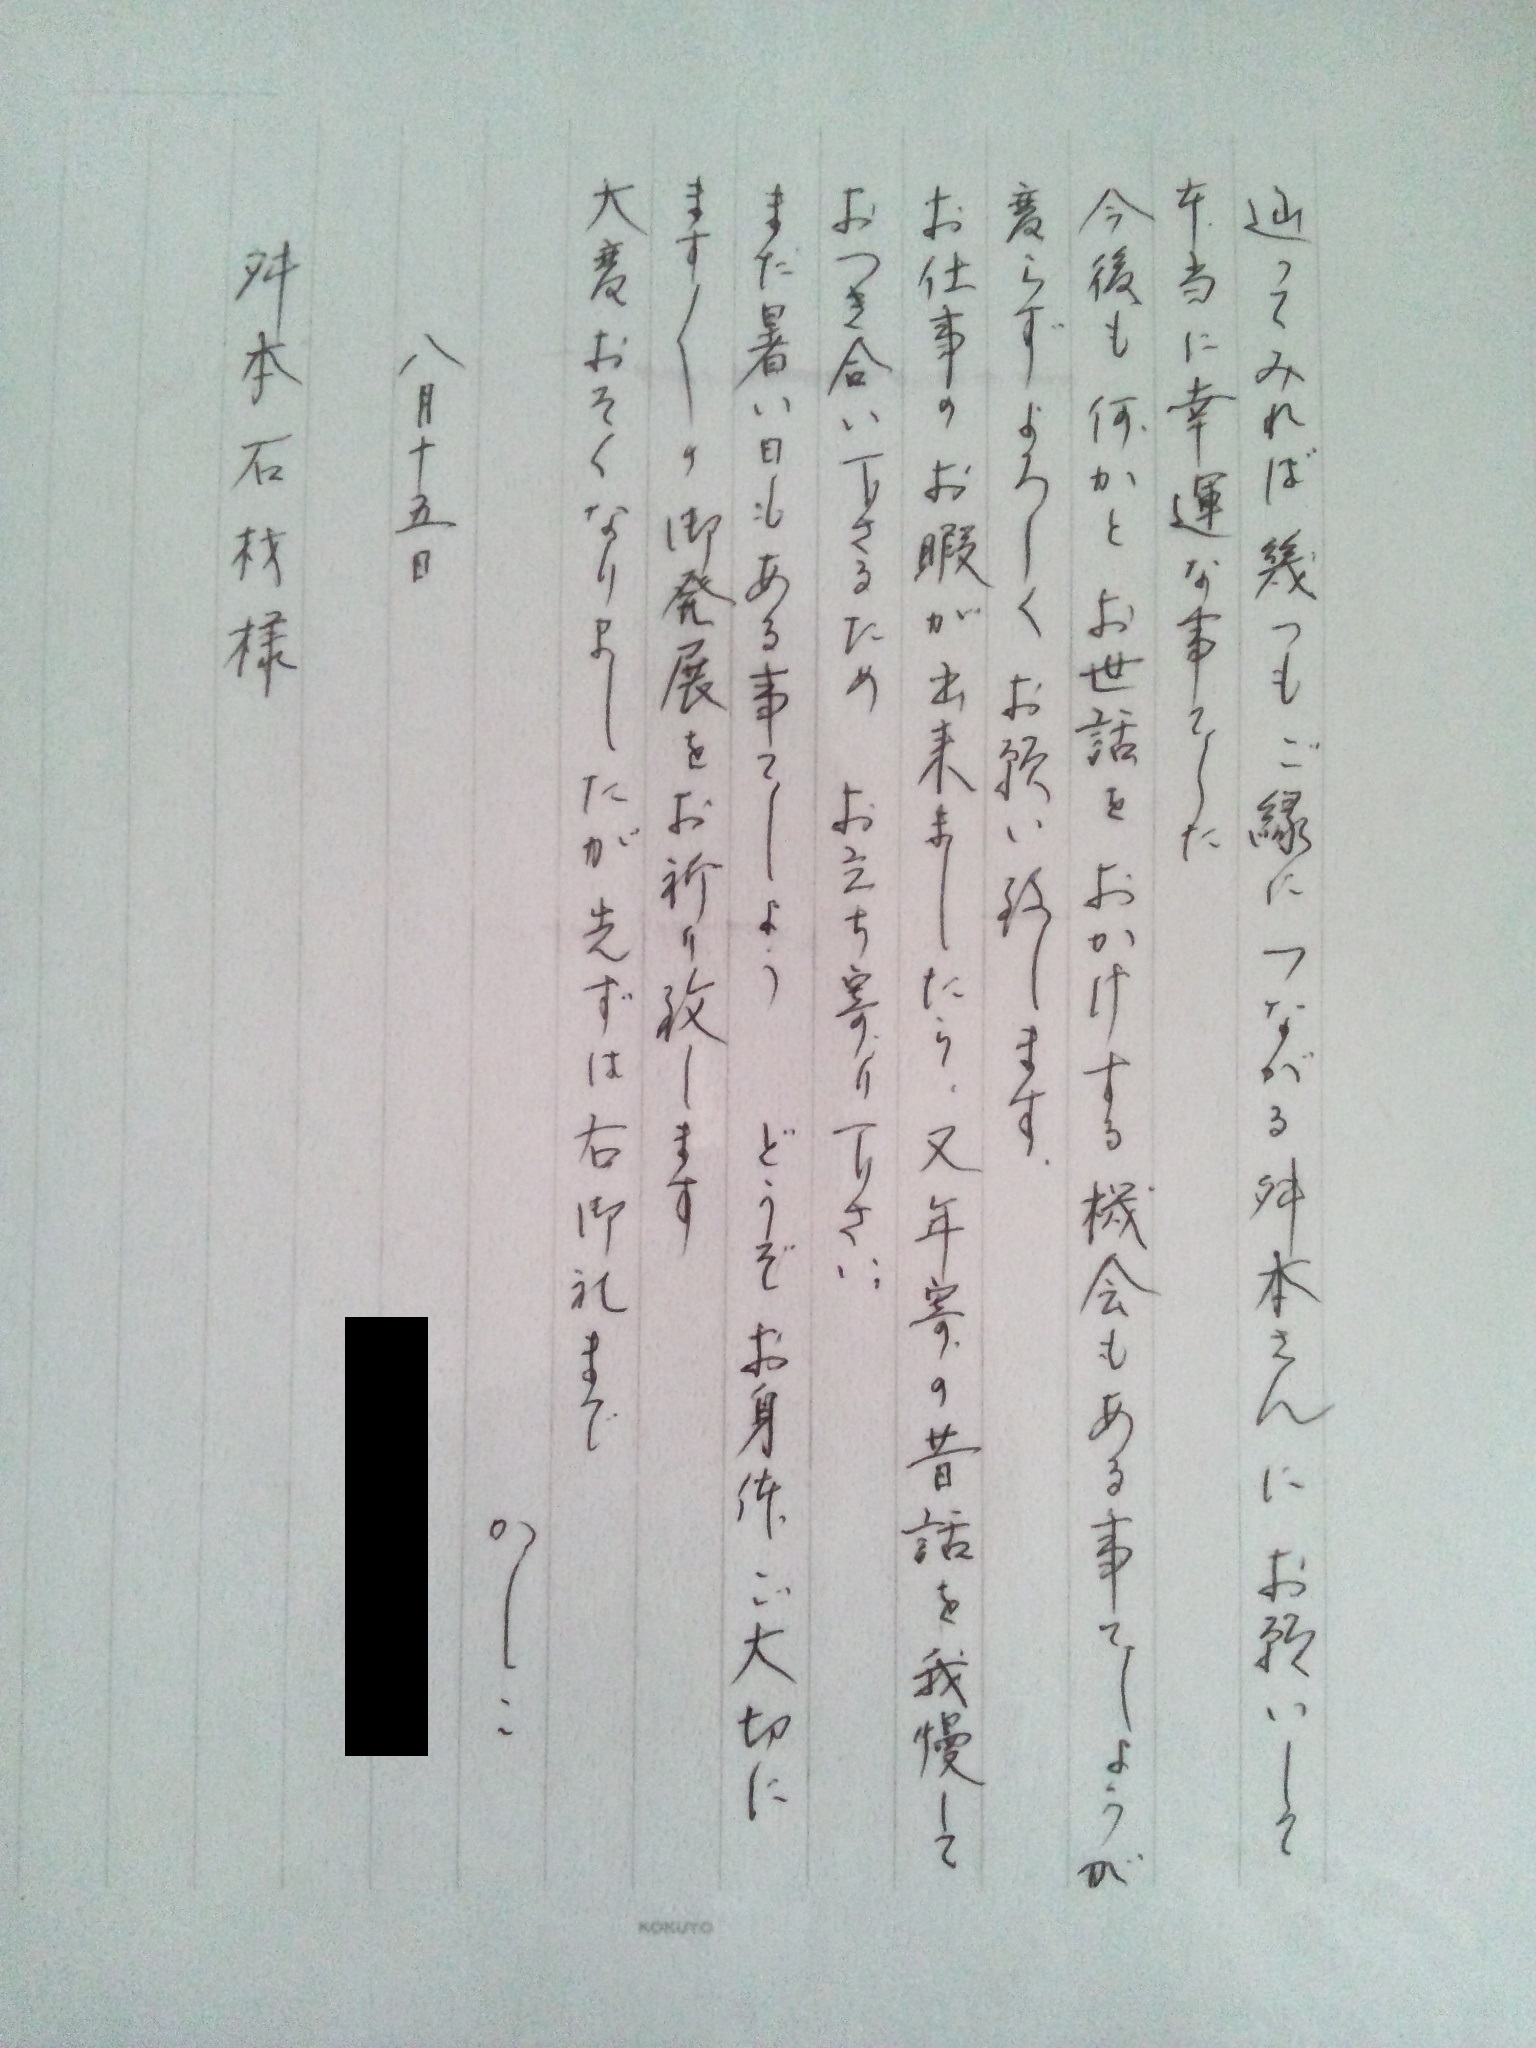 辿ってみれば幾つもご縁につながる舛本さんにお願いして
本当に幸運な事でした
今後も何かとお世話をおかけする機会もある事でしょうが
変らずよろしくお願い致します.
お仕事のお暇が出来ましたら、又年寄の昔話を我慢して
おつき合い下さるため お立ち寄り下さい;
まだ暑い日もある事でしょう どうぞお身体ご大切に
ます〳〵の御発展をお祈り致します
大変おそくなりましたが先ずは右御礼まで
かしこ
八月十五日
舛本石材様
KOKUYO